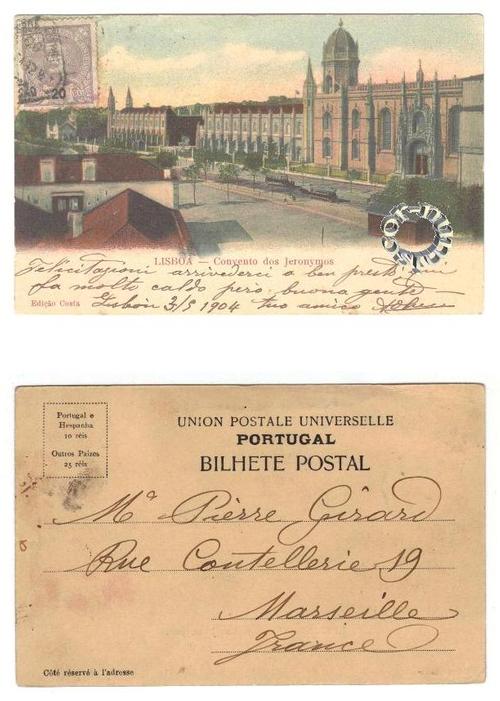 20 20
LISBOA — Convento dos Jeronymos
Felicitazioni arrivederci a ben presto, qui
fa molto caldo però buona gente —
Edição Costa
Lisbon 3/5 1904 tuo amico
Portugal e
Hespanha
10 réis
Outros Paizes
25 réis
UNION POSTALE UNIVERSELLE
PORTUGAL
BILHETE POSTAL
Mª Pièrre Gîrard
Rue Coutellerie 19
Marseille
France
Côté réservé à l'adresse